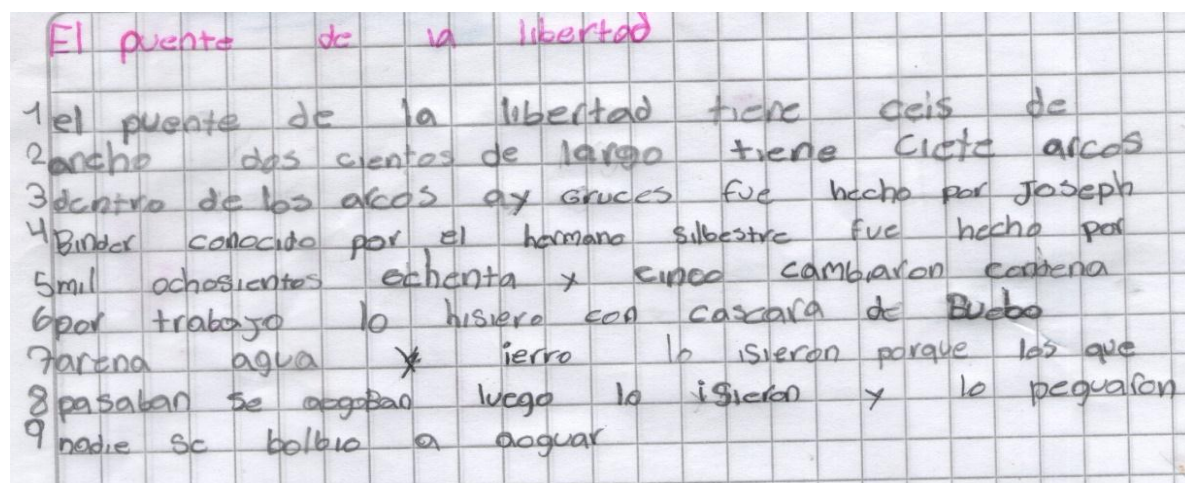 El puente de la libertad
1 el puente de la libertad tiene ceis de
2 ancho dos cientos de largo tiene ciete arcos
3 dentro de los arcos ay cruces fue hecho por Joseph
4 Binder conocido por el hermano silbestre fue hecho por
5 mil ochosientos echenta y cinco cambiaron condena
6 por trabajo lo hisiero con cascara de Buebo
7 arena agua y ierro lo isieron porque los que
8 pasaban se aogaban luego lo isieron y lo peguaron
9 nadie se bolbio a aoguar